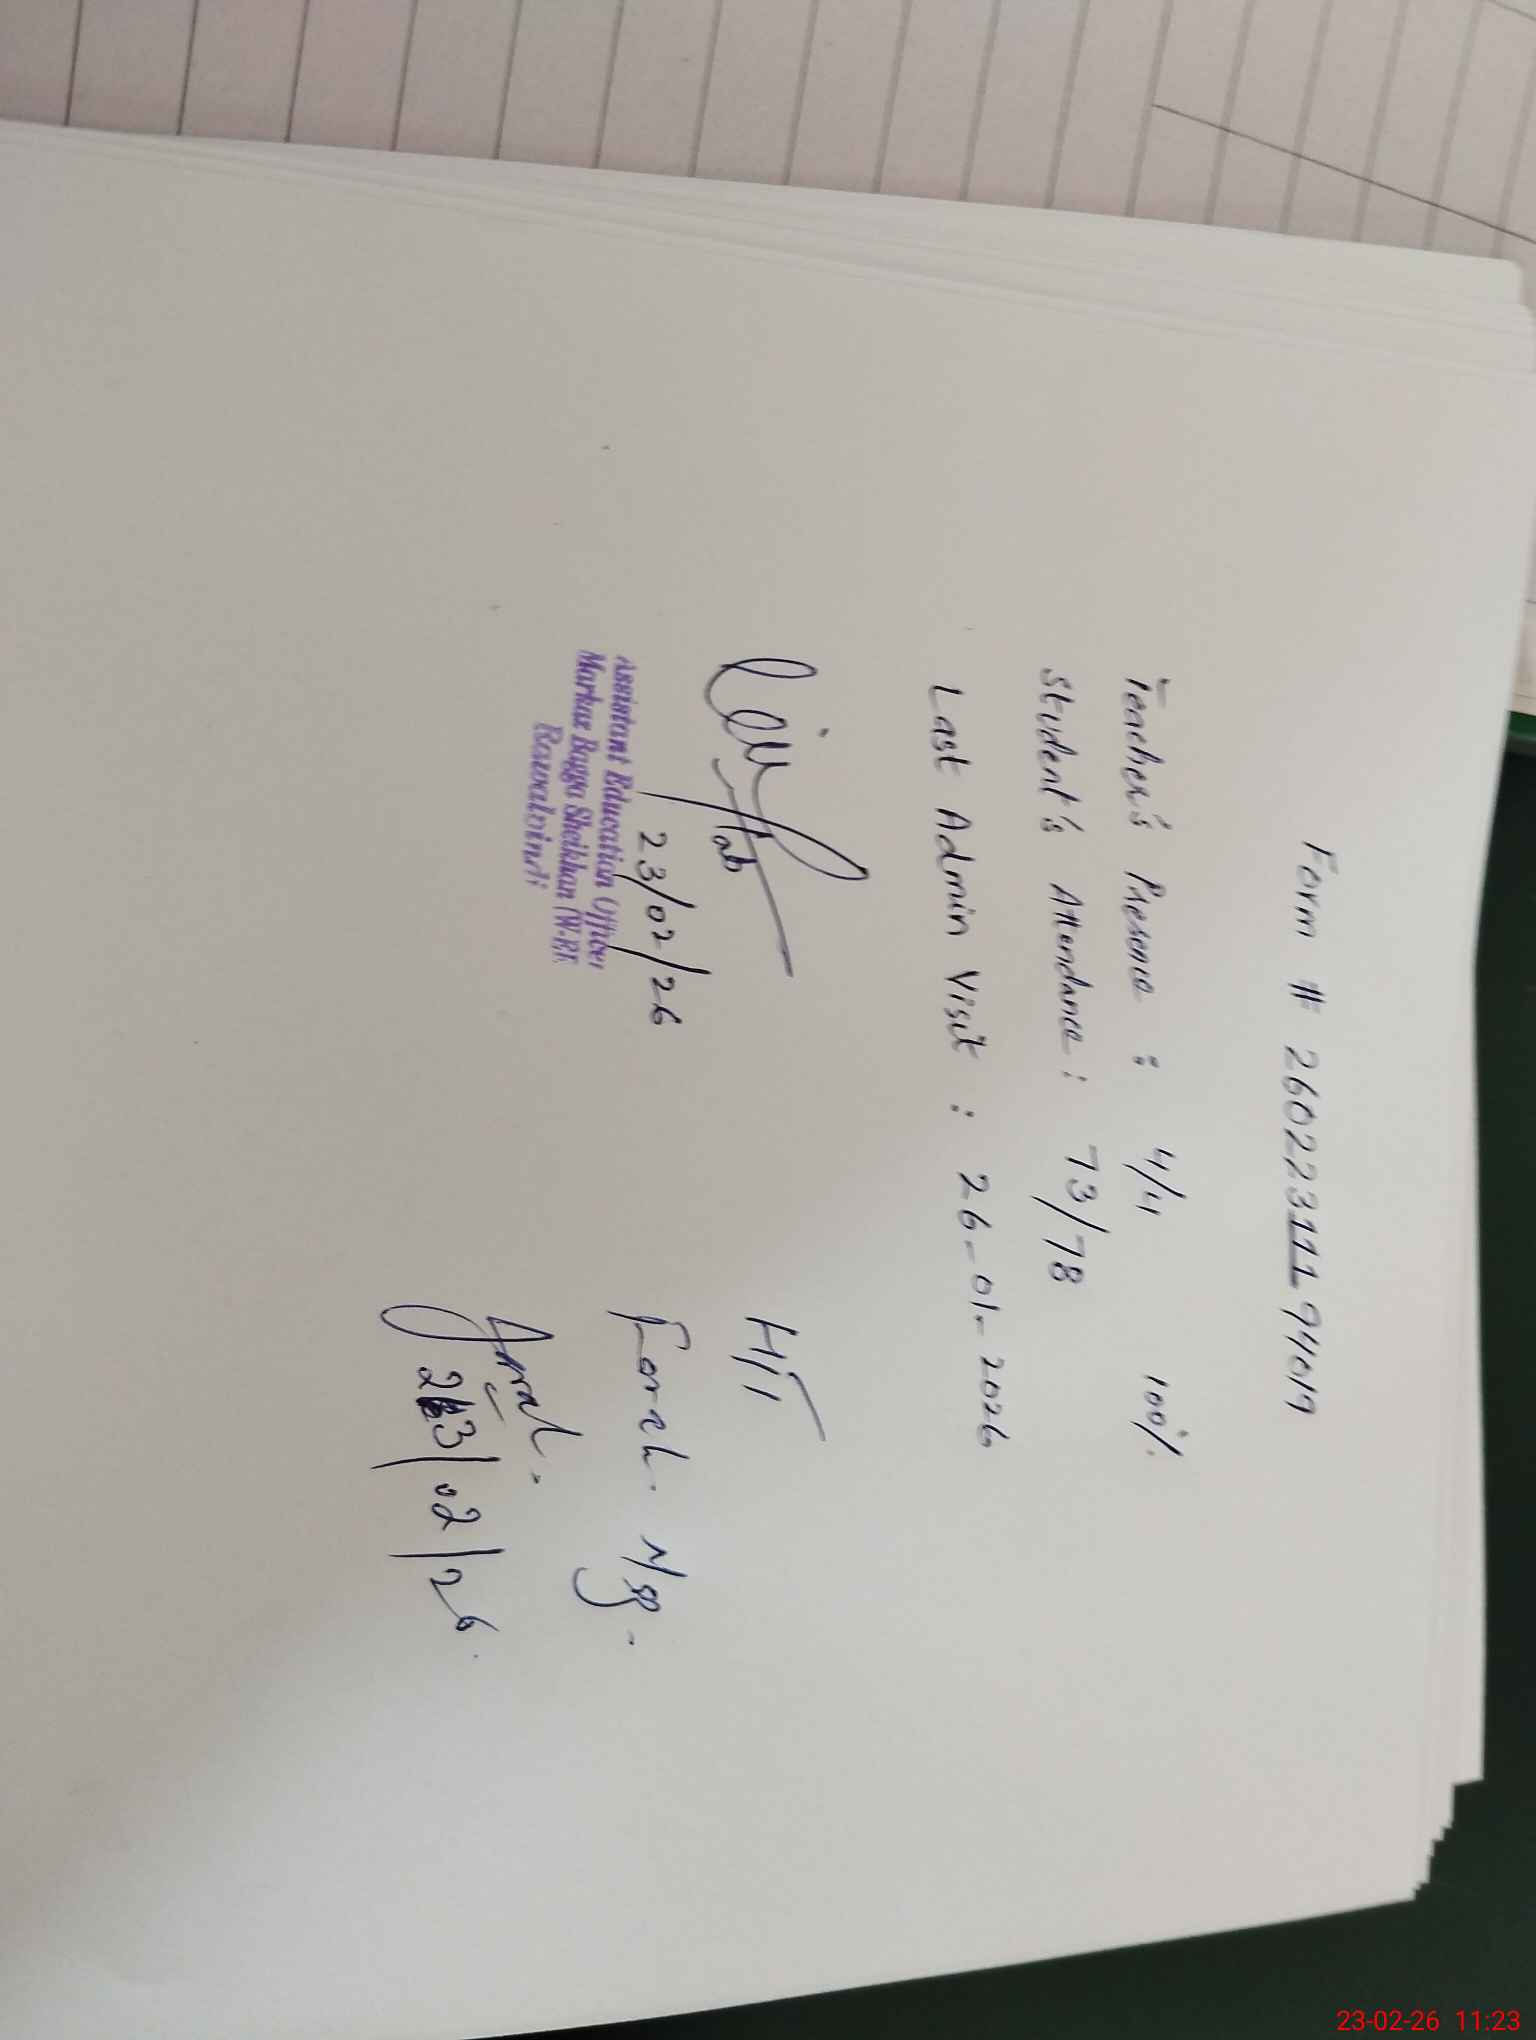 Form # 26022311194019
Teacher's Presence : 4/4 100%
Student's Attendance : 73/78
Last Admin Visit : 26-01-2026
23/02/26
Assistant Education Officer
Markaz Bagga Sheikhan (W-EE
Rawalpindi
H/T
23/02/26
23-02-26 11:23